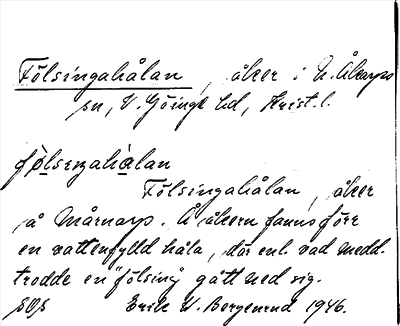 Fölsingahålan, åker i N. Åkarps
sn, V. Göinge hd, Krist. l.
Fölsingahålan, åker
å Mårnarp. Å åkern fanns förr
en vattenfylld håla, där enl. vad medd.
trodde en "fölsing" gått ned sig.
Erik W. Bergenrud 1946.